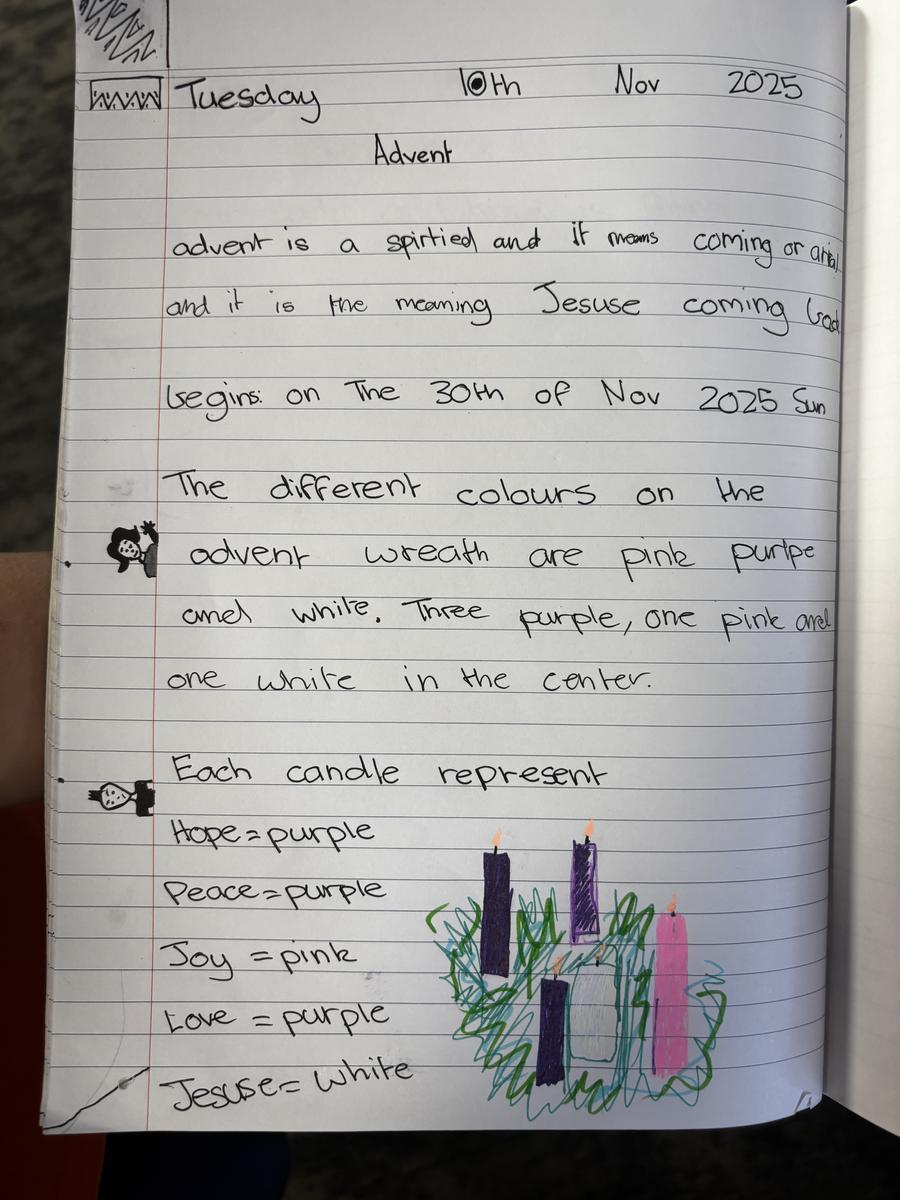 Tuesday 10th Nov 2025
Advent
advent is a spirtied and it means coming or
and it is the meaning Jesuse coming
begins: on The 30th of Nov 2025 Sun
The different colours on the
advent wreath are pink purlpe
and white. Three purple, one pink and
one white in the center.
Each candle represent
Hope = purple
Peace = purple
Joy = pink
Love = purple
Jesuse = white